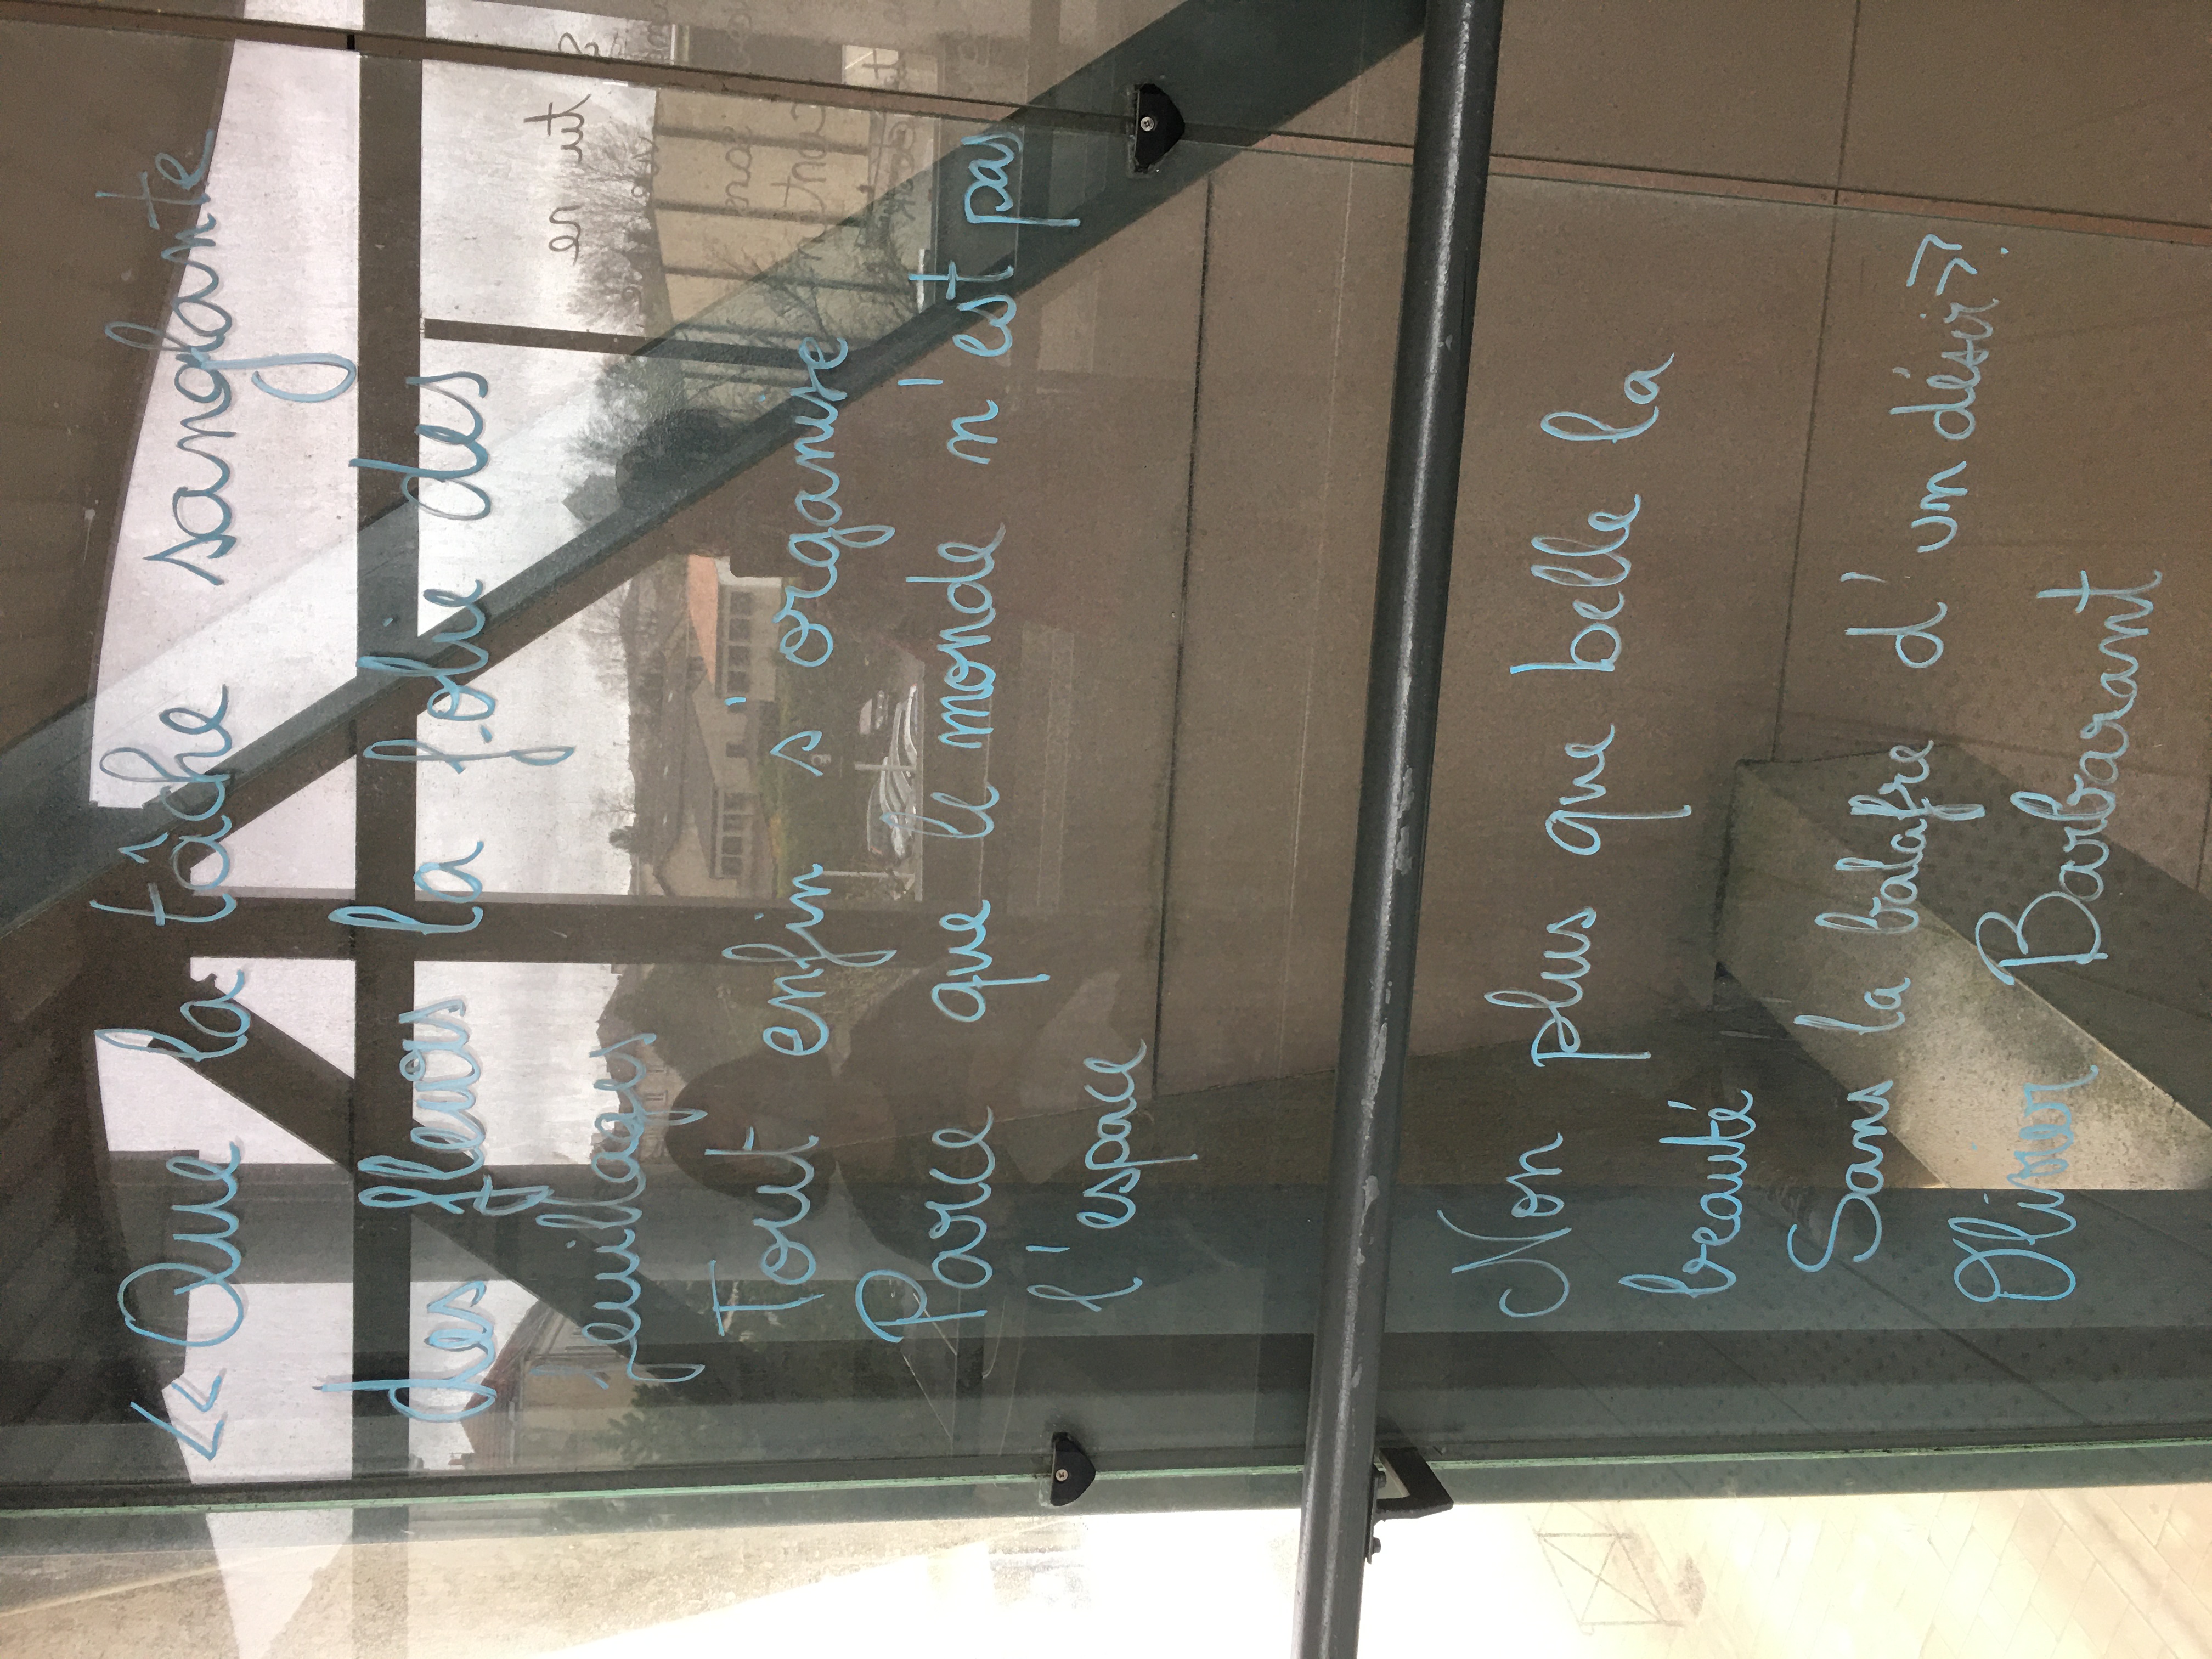 « Que la tâche sanglante
des fleurs la folie des
feuillages
Tout enfin s'organise
Parce que le monde n'est pas
l'espace
Non plus que belle la
beauté
Sans la balafre d'un désir ».
Olivier Barbarant
er ut